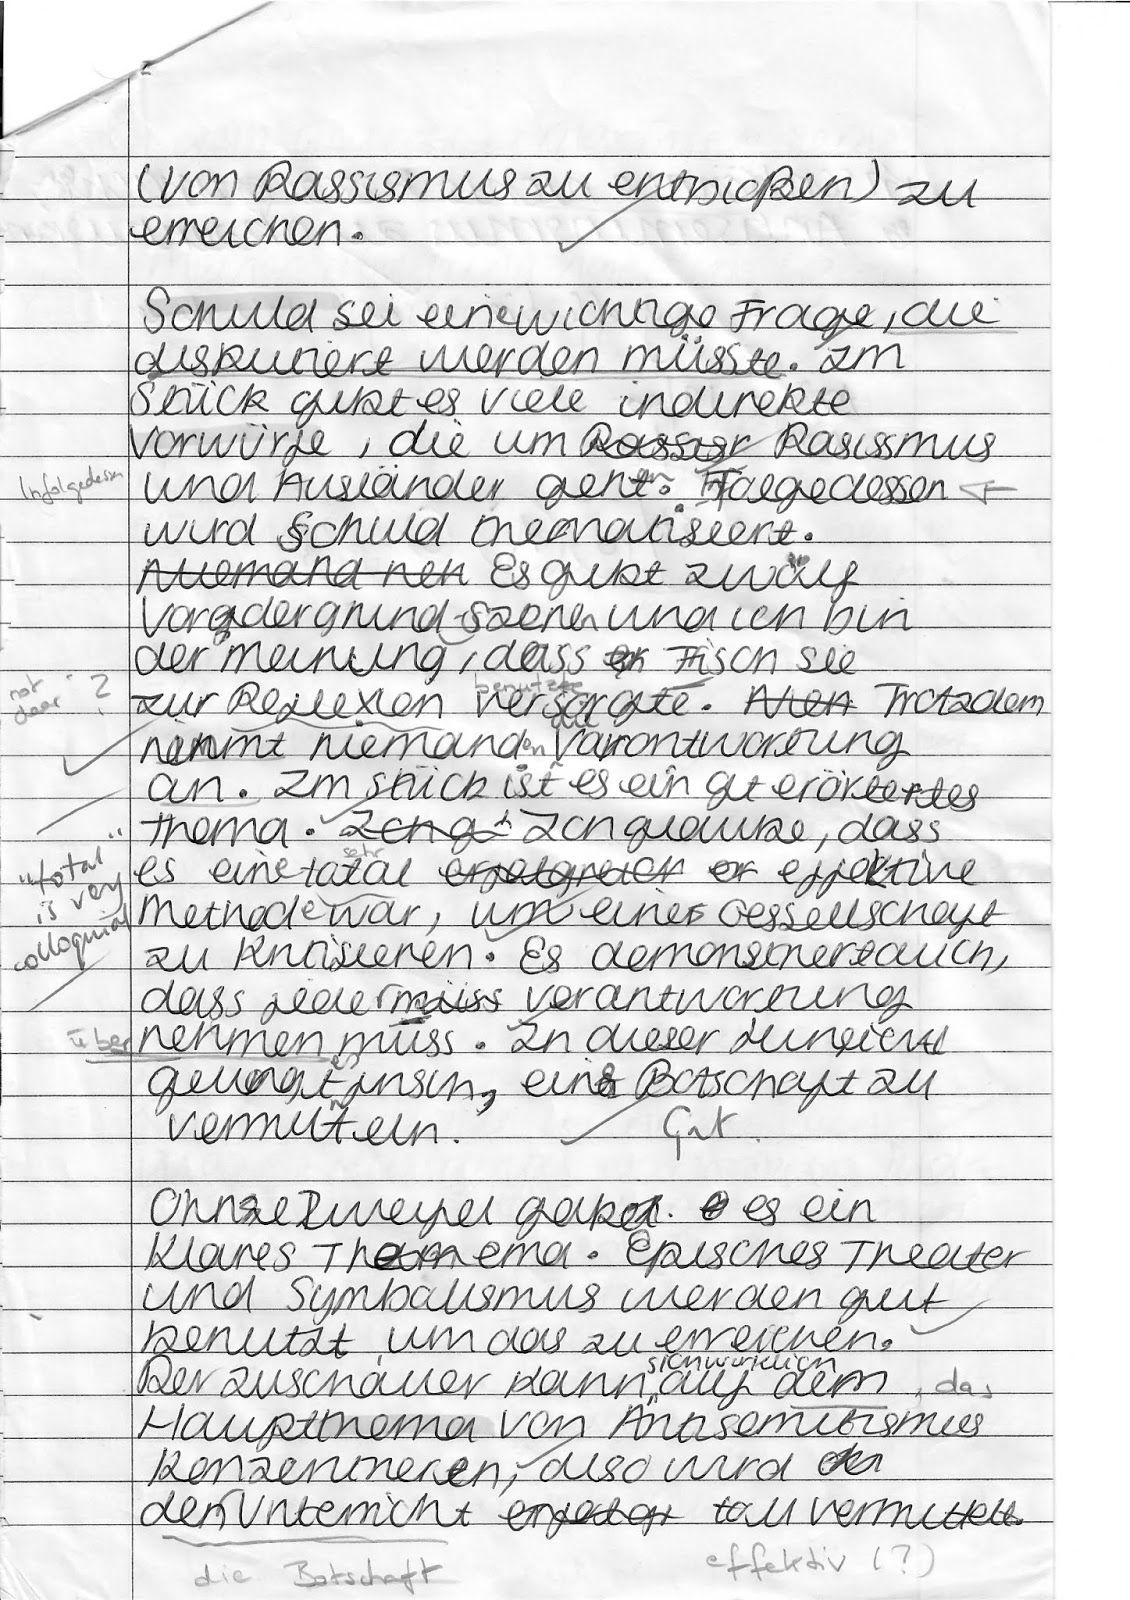 (von Rassismus zu entblößen) zu
erreichen.
Schuld sei eine wichtige Frage, die
diskutiert werden müsste. Im
Stück gibt es viele indirekte
Vorwürfe, die um Rassisr Rasissmus
Infolgedessen und Ausländer geht. en Folgedessen
wird Schuld thematisiert.
Niemand neh Es gibt zwölf
Vorgdergrund-szenen und ich bin
der meinung, dass er Frisch sie
not clear ? zur Reflexion versorgte. benutzte Nien Trotzdem
nimmt niemand Varantwortung
an. Im stück ist es ein gut erörtertes
Thema. Ich glaube, dass
"total" is very colloquial es eine total sehr erfolgreich er effektive
Methode war, um einer Gessellschaft
zu kritisieren. Es demonstriert auch,
dass jeder müss verantwortung
über nehmen muss. In dieser Hinsicht
gelingt Frisch, eine Botschaft zu
vermitteln. Gut.
Ohne Zweifel es ein
klares Thema. Episches Theater
und Symbolismus werden gut
benutzt, um das zu erreichen.
Der Zuschauer kann sich wirklich auf dem , das
Hauptthema von Äntisemitismus
konzentrieren, also wird
den Unterricht toll vermittelt.
die Botschaft effektiv (?)